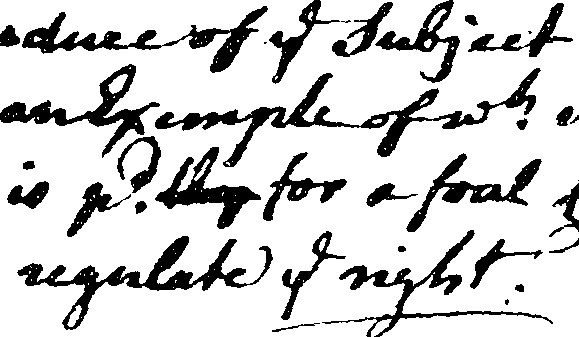 of ye Subject
an Exemple of wh.
is pd. for a foal
regulate ye right.